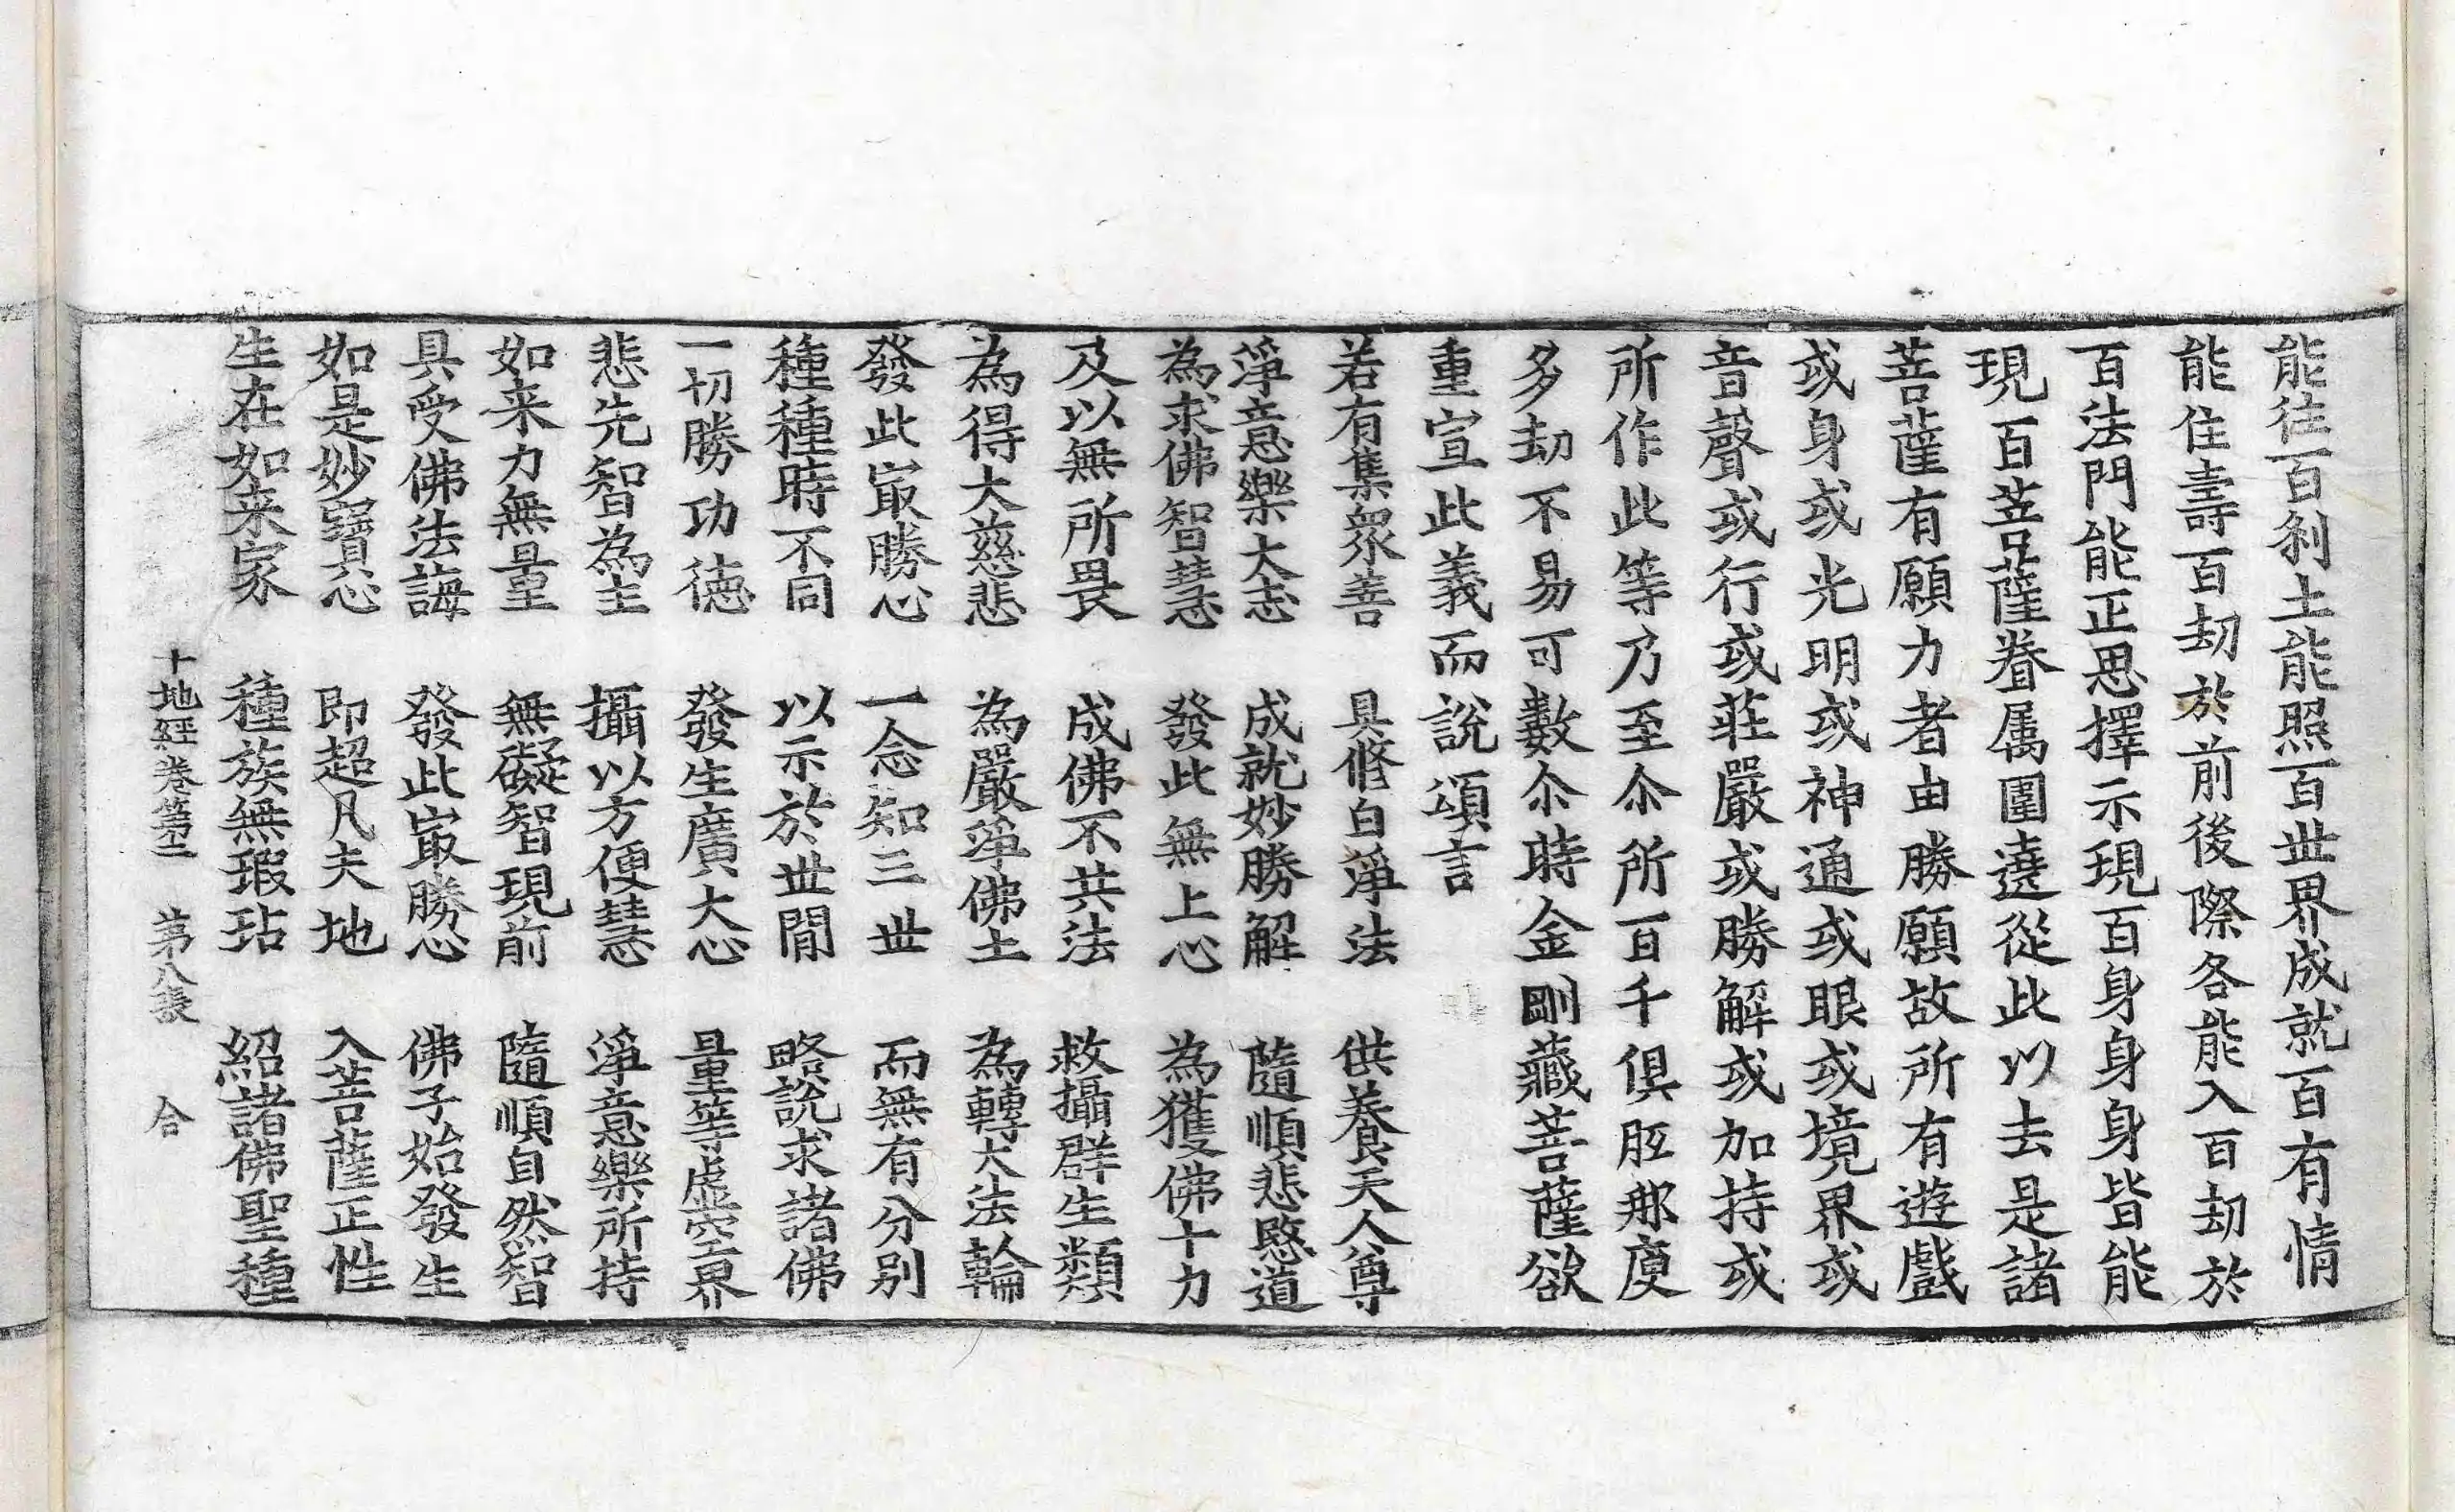 能往百刹土能照百世界成就百有情
能住壽百劫於前後際各能入百劫於
百法門能正思擇示現百身身身皆能
現百菩薩眷属圍遶從此以去是諸
菩薩有願力者由勝願故所有遊戲
或身或光明或神通或眼或境界或
音聲或行或莊嚴或勝解或加持或
所作此等乃至尒所百千俱胝那庾
多劫不易可數尒時金剛藏菩薩欲
重宣此義而說頌言
若有集衆善　具修白淨法　供養天人尊
淨意樂大志　成就妙勝解　隨順悲愍道
為求佛智慧　發此無上心　為獲佛十力
及以無所畏　成佛不共法　救攝群生類
為得大慈悲　為嚴淨佛土　為轉大法輪
發此㝡勝心　一念知三世　而無有分別
種種時不同　以示於世間　略說求諸佛
一切勝功德　發生廣大心　量等虛空界
悲先智為主　攝以方便慧　淨意樂所持
如来力無量　無礙智現前　隨順自然智
具受佛法誨　發此㝡勝心　佛子始發生
如是妙寶心　即超凡夫地　入菩薩正性
生在如来家　種族無瑕玷　紹諸佛聖種
十地經卷第二　第八張　合